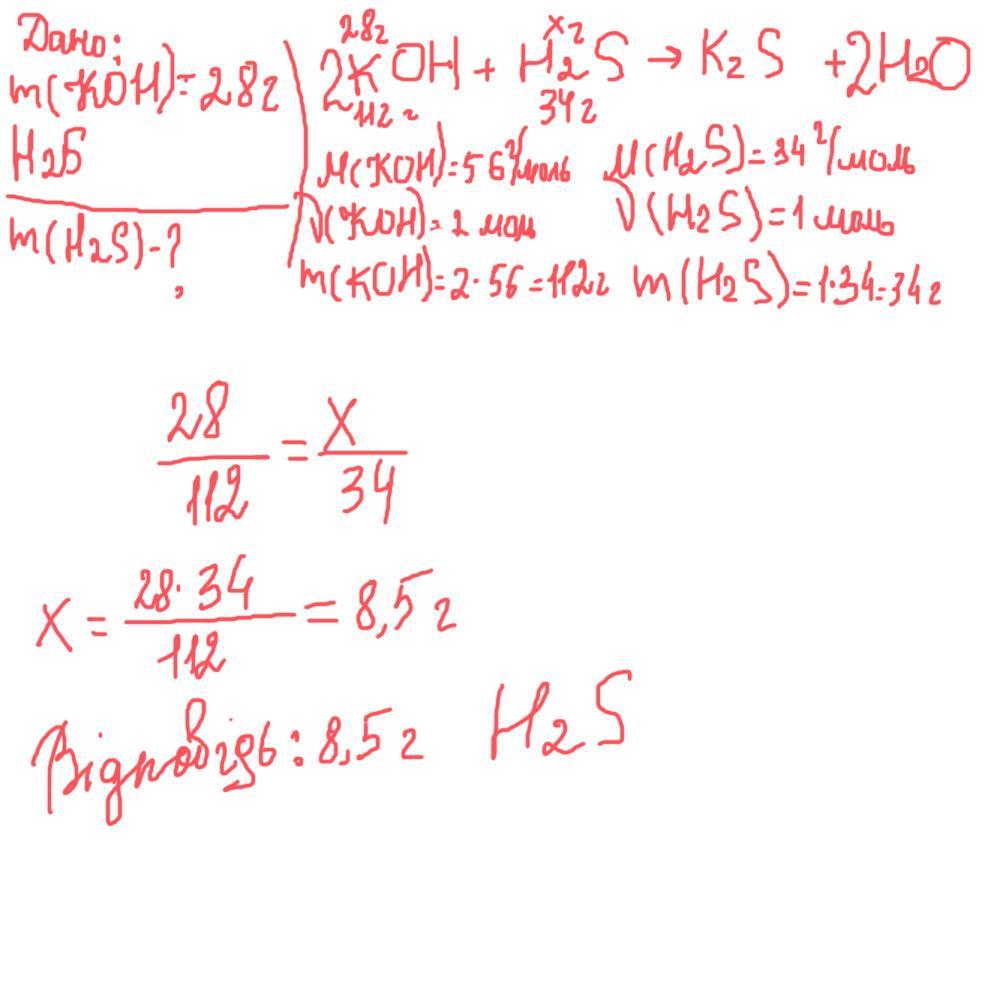 Дано:
m(KOH)=28г
H₂S
m(H₂S)-?
28г хг
2KOH + H₂S → K₂S +2H₂O
112г 34г
M(KOH)=56г/моль M(H₂S)=34г/моль
ν(KOH)=2 моль ν(H₂S)=1 моль
m(KOH)=2·56=112г m(H₂S)=1·34=34г
28/112 = X/34
X = 28·34/112 = 8,5г
Відповідь: 8,5г H₂S